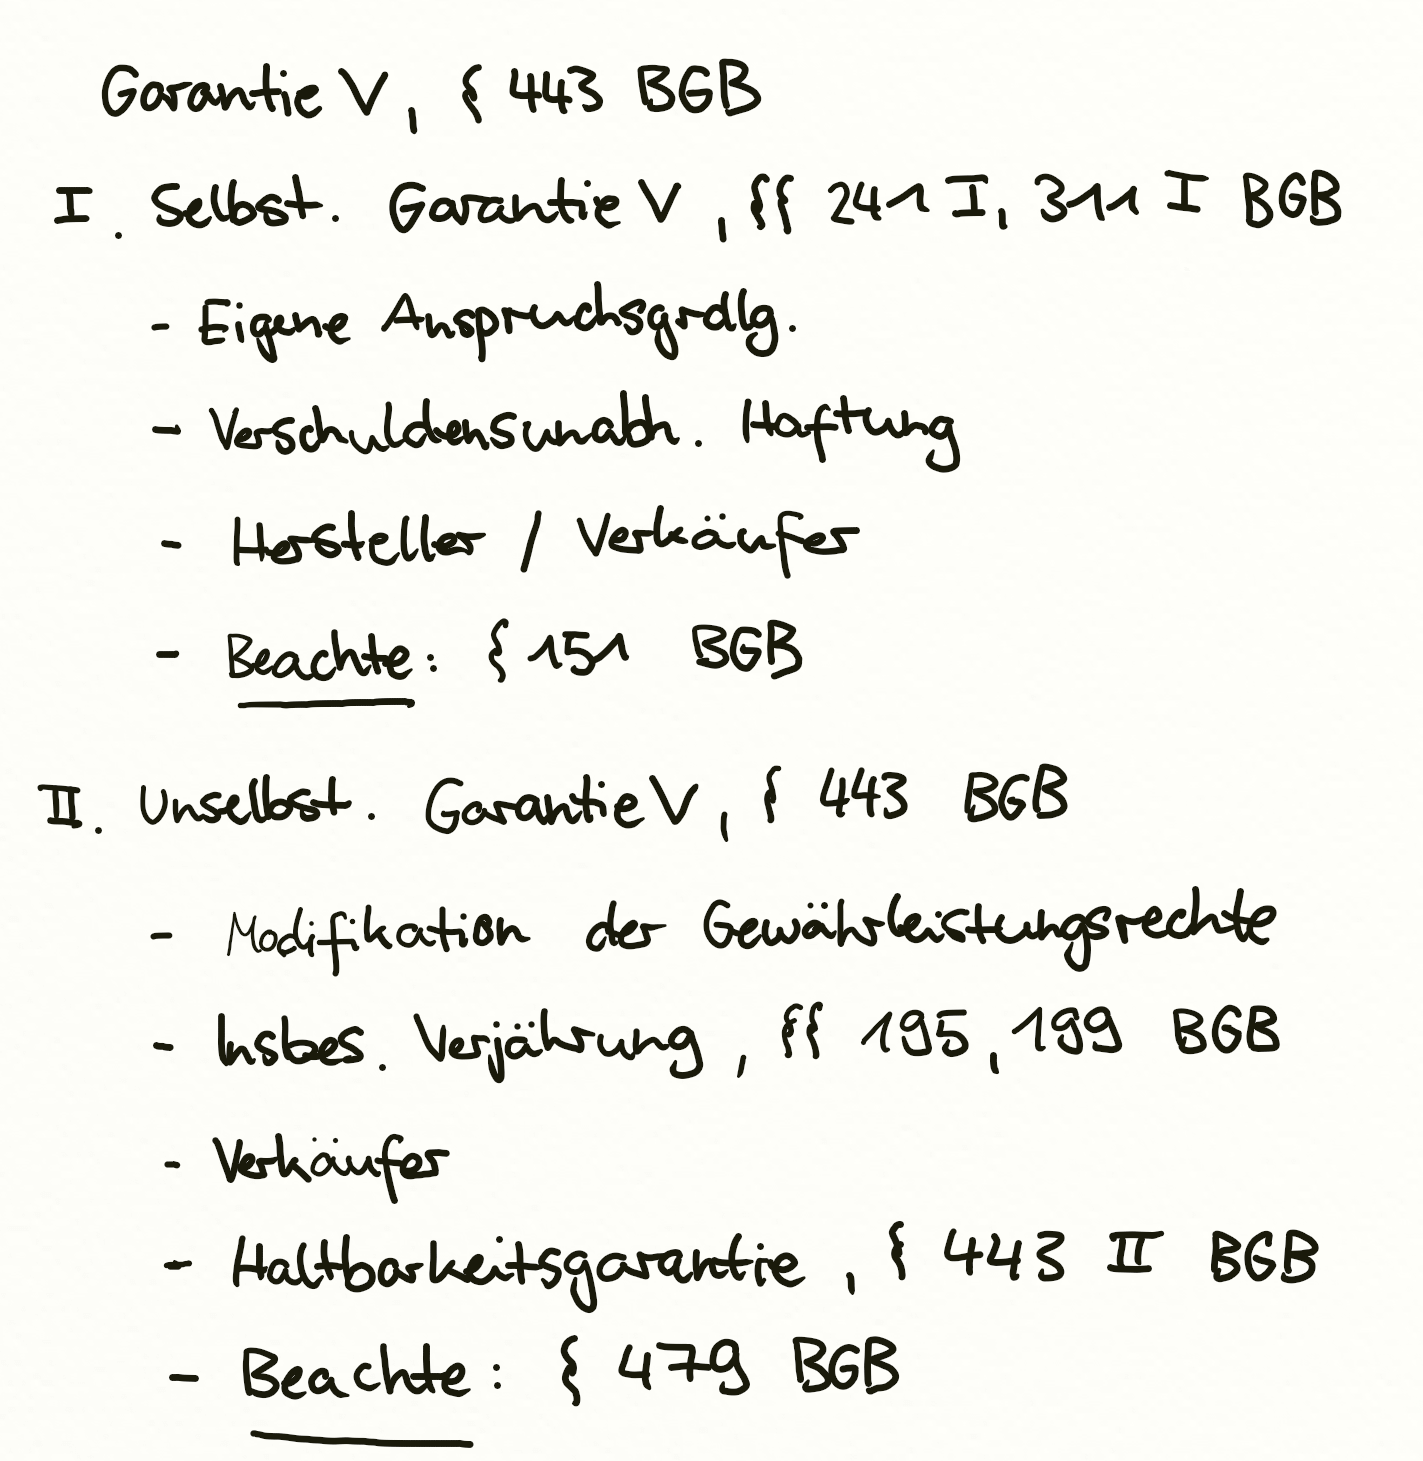 Garantie V, § 443 BGB
I. Selbst. Garantie V, §§ 241 I, 311 I BGB
- Eigene Anspruchsgrdlg.
- Verschuldensunabh. Haftung
- Hersteller / Verkäufer
- Beachte: § 151 BGB
II. Unselbst. Garantie V, § 443 BGB
- Modifikation der Gewährleistungsrechte
- Insbes. Verjährung, §§ 195, 199 BGB
- Verkäufer
- Haltbarkeitsgarantie, § 443 II BGB
- Beachte: § 479 BGB